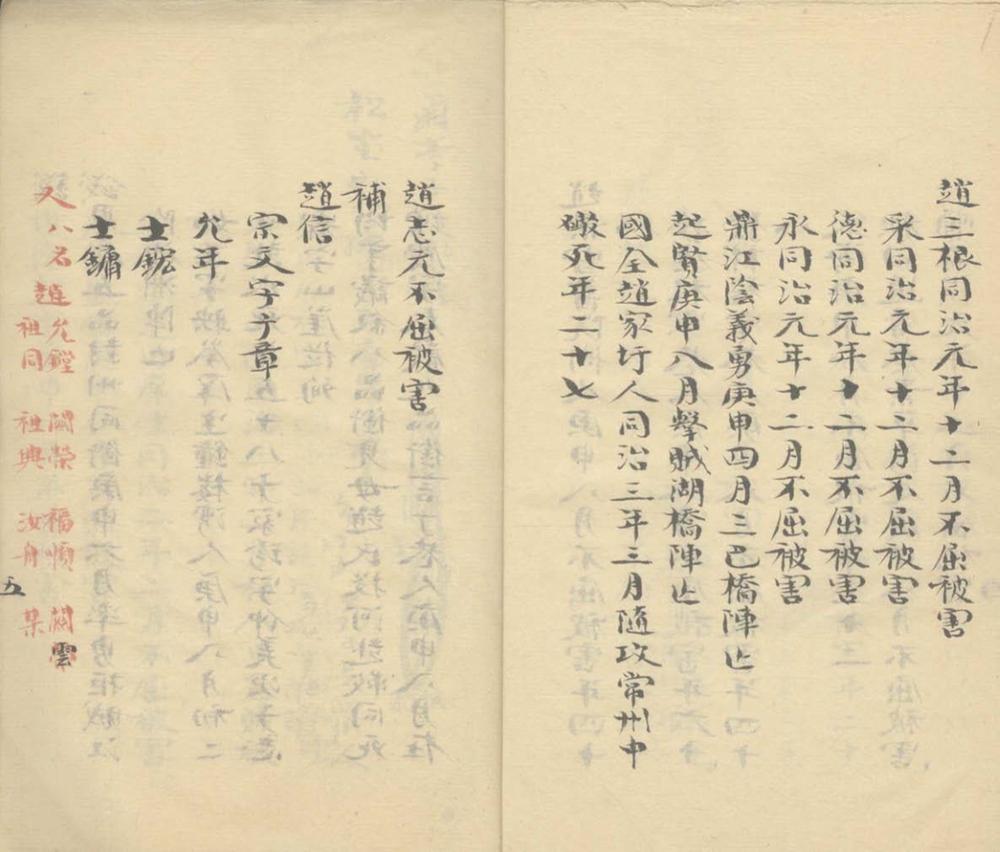 趙三根同治元年十二月不屈被害
采同治元年十二月不屈被害
德同治元年十二月不屈被害
永同治元年十二月不屈被害
鼎江陰義勇庚申四月三巴橋陣亡
起賢庚申八月擊賊湖橋陣亡
國全趙家圩人同治三年三月隨攻常州中
礮死年二十七
趙志元不屈被害
補
趙信
宗文字子章
允年
士鋐
士鏞
又八名趙允鏜 闕榮 福順 闕雲
祖同 祖興 汝舟 某
五